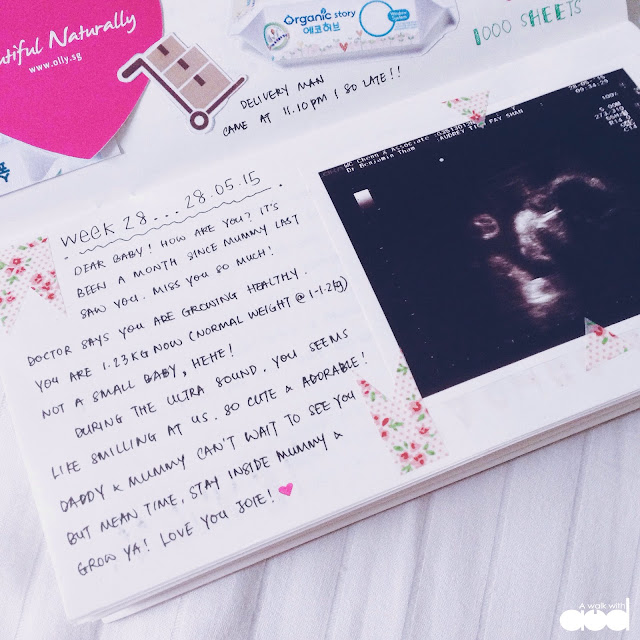 utiful Naturally
www.olly.sg
Organic story
에코허브
1000 SHEETS
DELIVERY MAN
CAME AT 11.10PM! SO LATE!!
week 28.... 28.05.15
DEAR BABY! HOW ARE YOU? IT'S
BEEN A MONTH SINCE MUMMY LAST
SAW YOU. MISS YOU SO MUCH!
DOCTOR SAYS YOU ARE GROWING HEALTHY.
YOU ARE 1.23KG NOW (NORMAL WEIGHT @ 1-1.2kg)
NOT A SMALL BABY, HEHE!
DURING THE ULTRA SOUND. YOU SEEMS
LIKE SMILLING AT US. SO CUTE & ADORABLE!
DADDY & MUMMY CAN'T WAIT TO SEE YOU
BUT MEAN TIME. STAY INSIDE MUMMY &
GROW YA! LOVE YOU JOIE!
WC Cheng & Associate
Dr Benjamin Tham
A walk with
aud